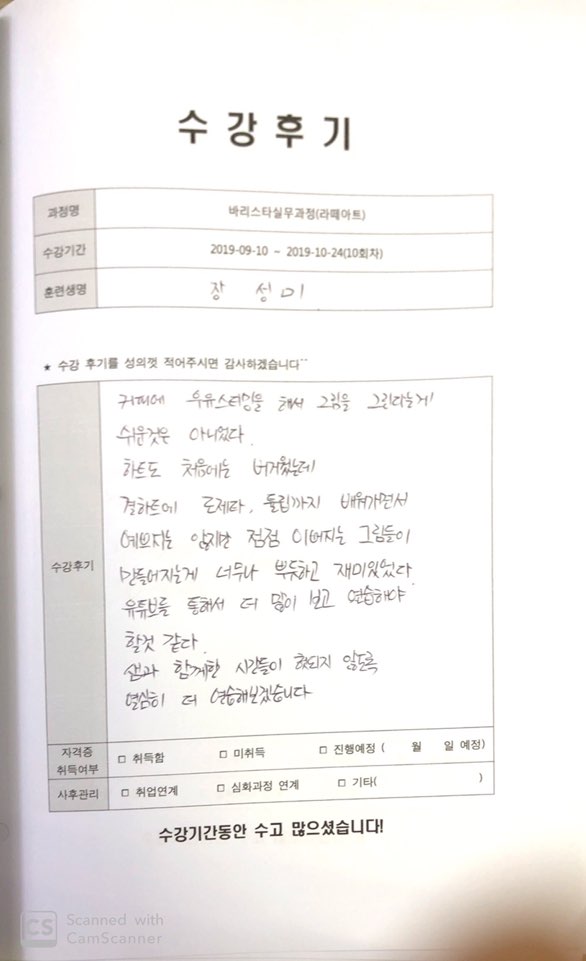 수 강 후 기
과정명 바리스타실무과정(라떼아트)
수강기간 2019-09-10 ~ 2019-10-24(10회차)
훈련생명 장 성미
★ 수강 후기를 성의껏 적어주시면 감사하겠습니다^^
커피에 우유스티밍을 해서 그림을 그린다는게
쉬운것은 아니었다.
하트도 처음에는 버거웠는데
결하트에 로제타, 튤립까지 배워가면서
예쁘지는 않지만 점점 이뻐지는 그림들이
수강후기 만들어지는게 너무나 뿌듯하고 재미있었다.
유튜브를 통해서 더 많이 보고 연습해야
할것 같다.
샘과 함께한 시간들이 헛되지 않도록
열심히 더 연습해보겠습니다
자격증 취득여부 □ 취득함 □ 미취득 □ 진행예정 ( 월 일 예정)
사후관리 □ 취업연계 □ 심화과정 연계 □ 기타( )
수강기간동안 수고 많으셨습니다!
CS Scanned with
CamScanner